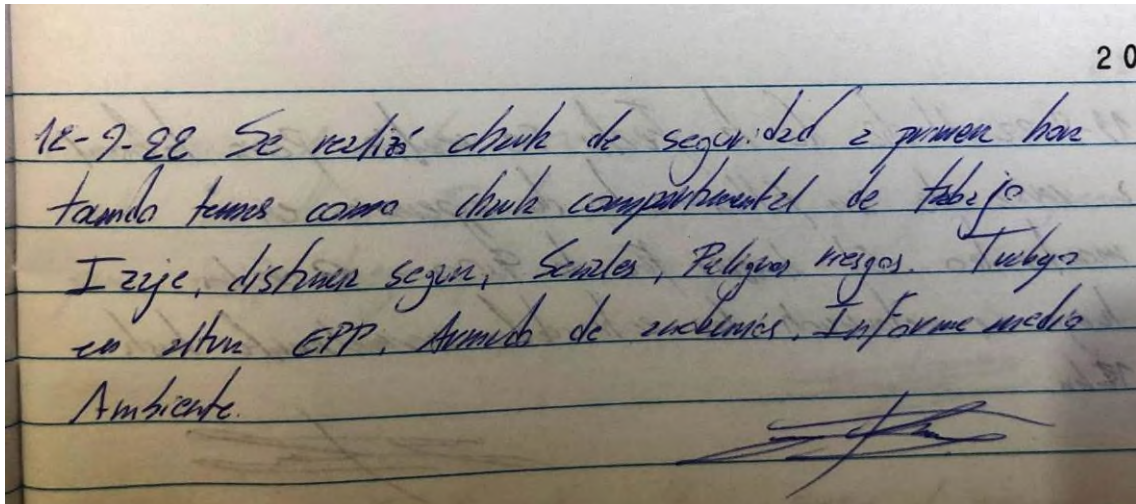 20
12-9-22 Se realizó charla de seguridad a primera hora
tomando temas como charla comportamental de trabajo
Izaje, distancia segura, Señales, Peligros riesgos. Trabajo
en altura EPP. Armado de andamios. Informe medio
Ambiente.